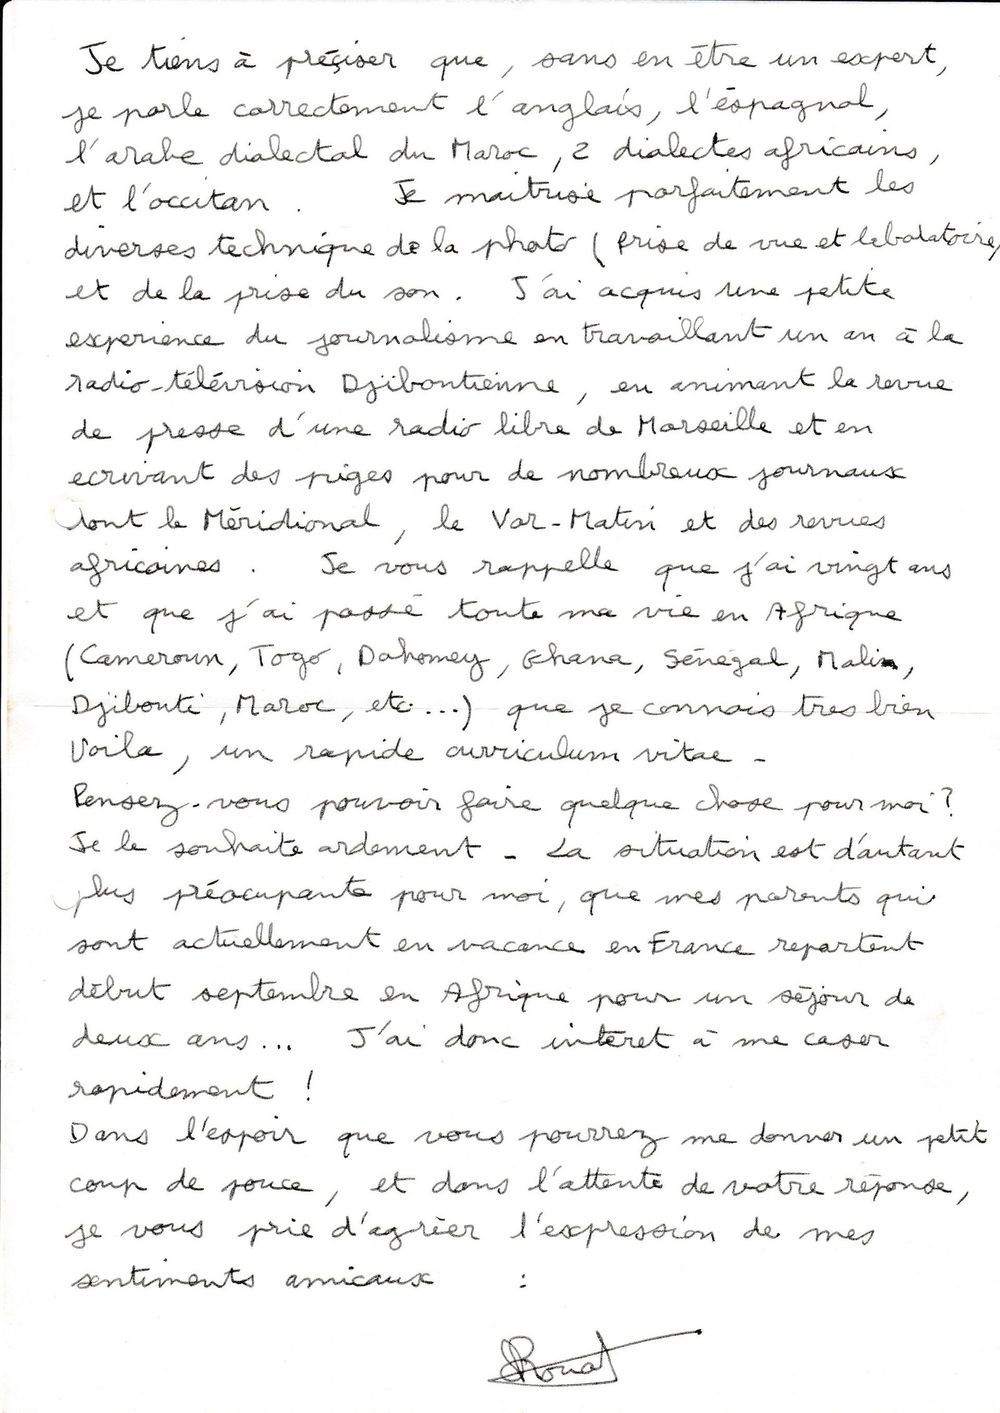 Je tiens à préçiser que, sans en être un expert,
je parle correctement l'anglais, l'éspagnol,
l'arabe dialectal du Maroc, 2 dialectes africains,
et l'occitan. Je maitrise parfaitement les
diverses technique de la photo (prise de vue et lebolatoire)
et de la prise du son. J'ai acquis une petite
experience du journalisme en travaillant un an à la
radio-télévision Djiboutienne, en animant la revue
de presse d'une radio libre de Marseille et en
ecrivant des piges pour de nombreux journaux
dont le Méridional, le Var-Matin et des revues
africaines. Je vous rappelle que j'ai vingt ans
et que j'ai passé toute ma vie en Afrique
(Cameroun, Togo, Dahomey, Ghana, Sénégal, Mali,
Djibouti, Maroc, etc...) que je connais tres bien
Voila, un rapide curriculum vitae -
Pensez-vous pouvoir faire quelque chose pour moi?
Je le souhaite ardement - La situation est d'autant
plus préocupante pour moi, que mes parents qui
sont actuellement en vacance en France repartent
début septembre en Afrique pour un séjour de
deux ans... J'ai donc interet à me caser
rapidement !
Dans l'espoir que vous pourrez me donner un petit
coup de pouce, et dans l'attente de votre réponse,
je vous prie d'agrèer l'expression de mes
sentiments amicaux :